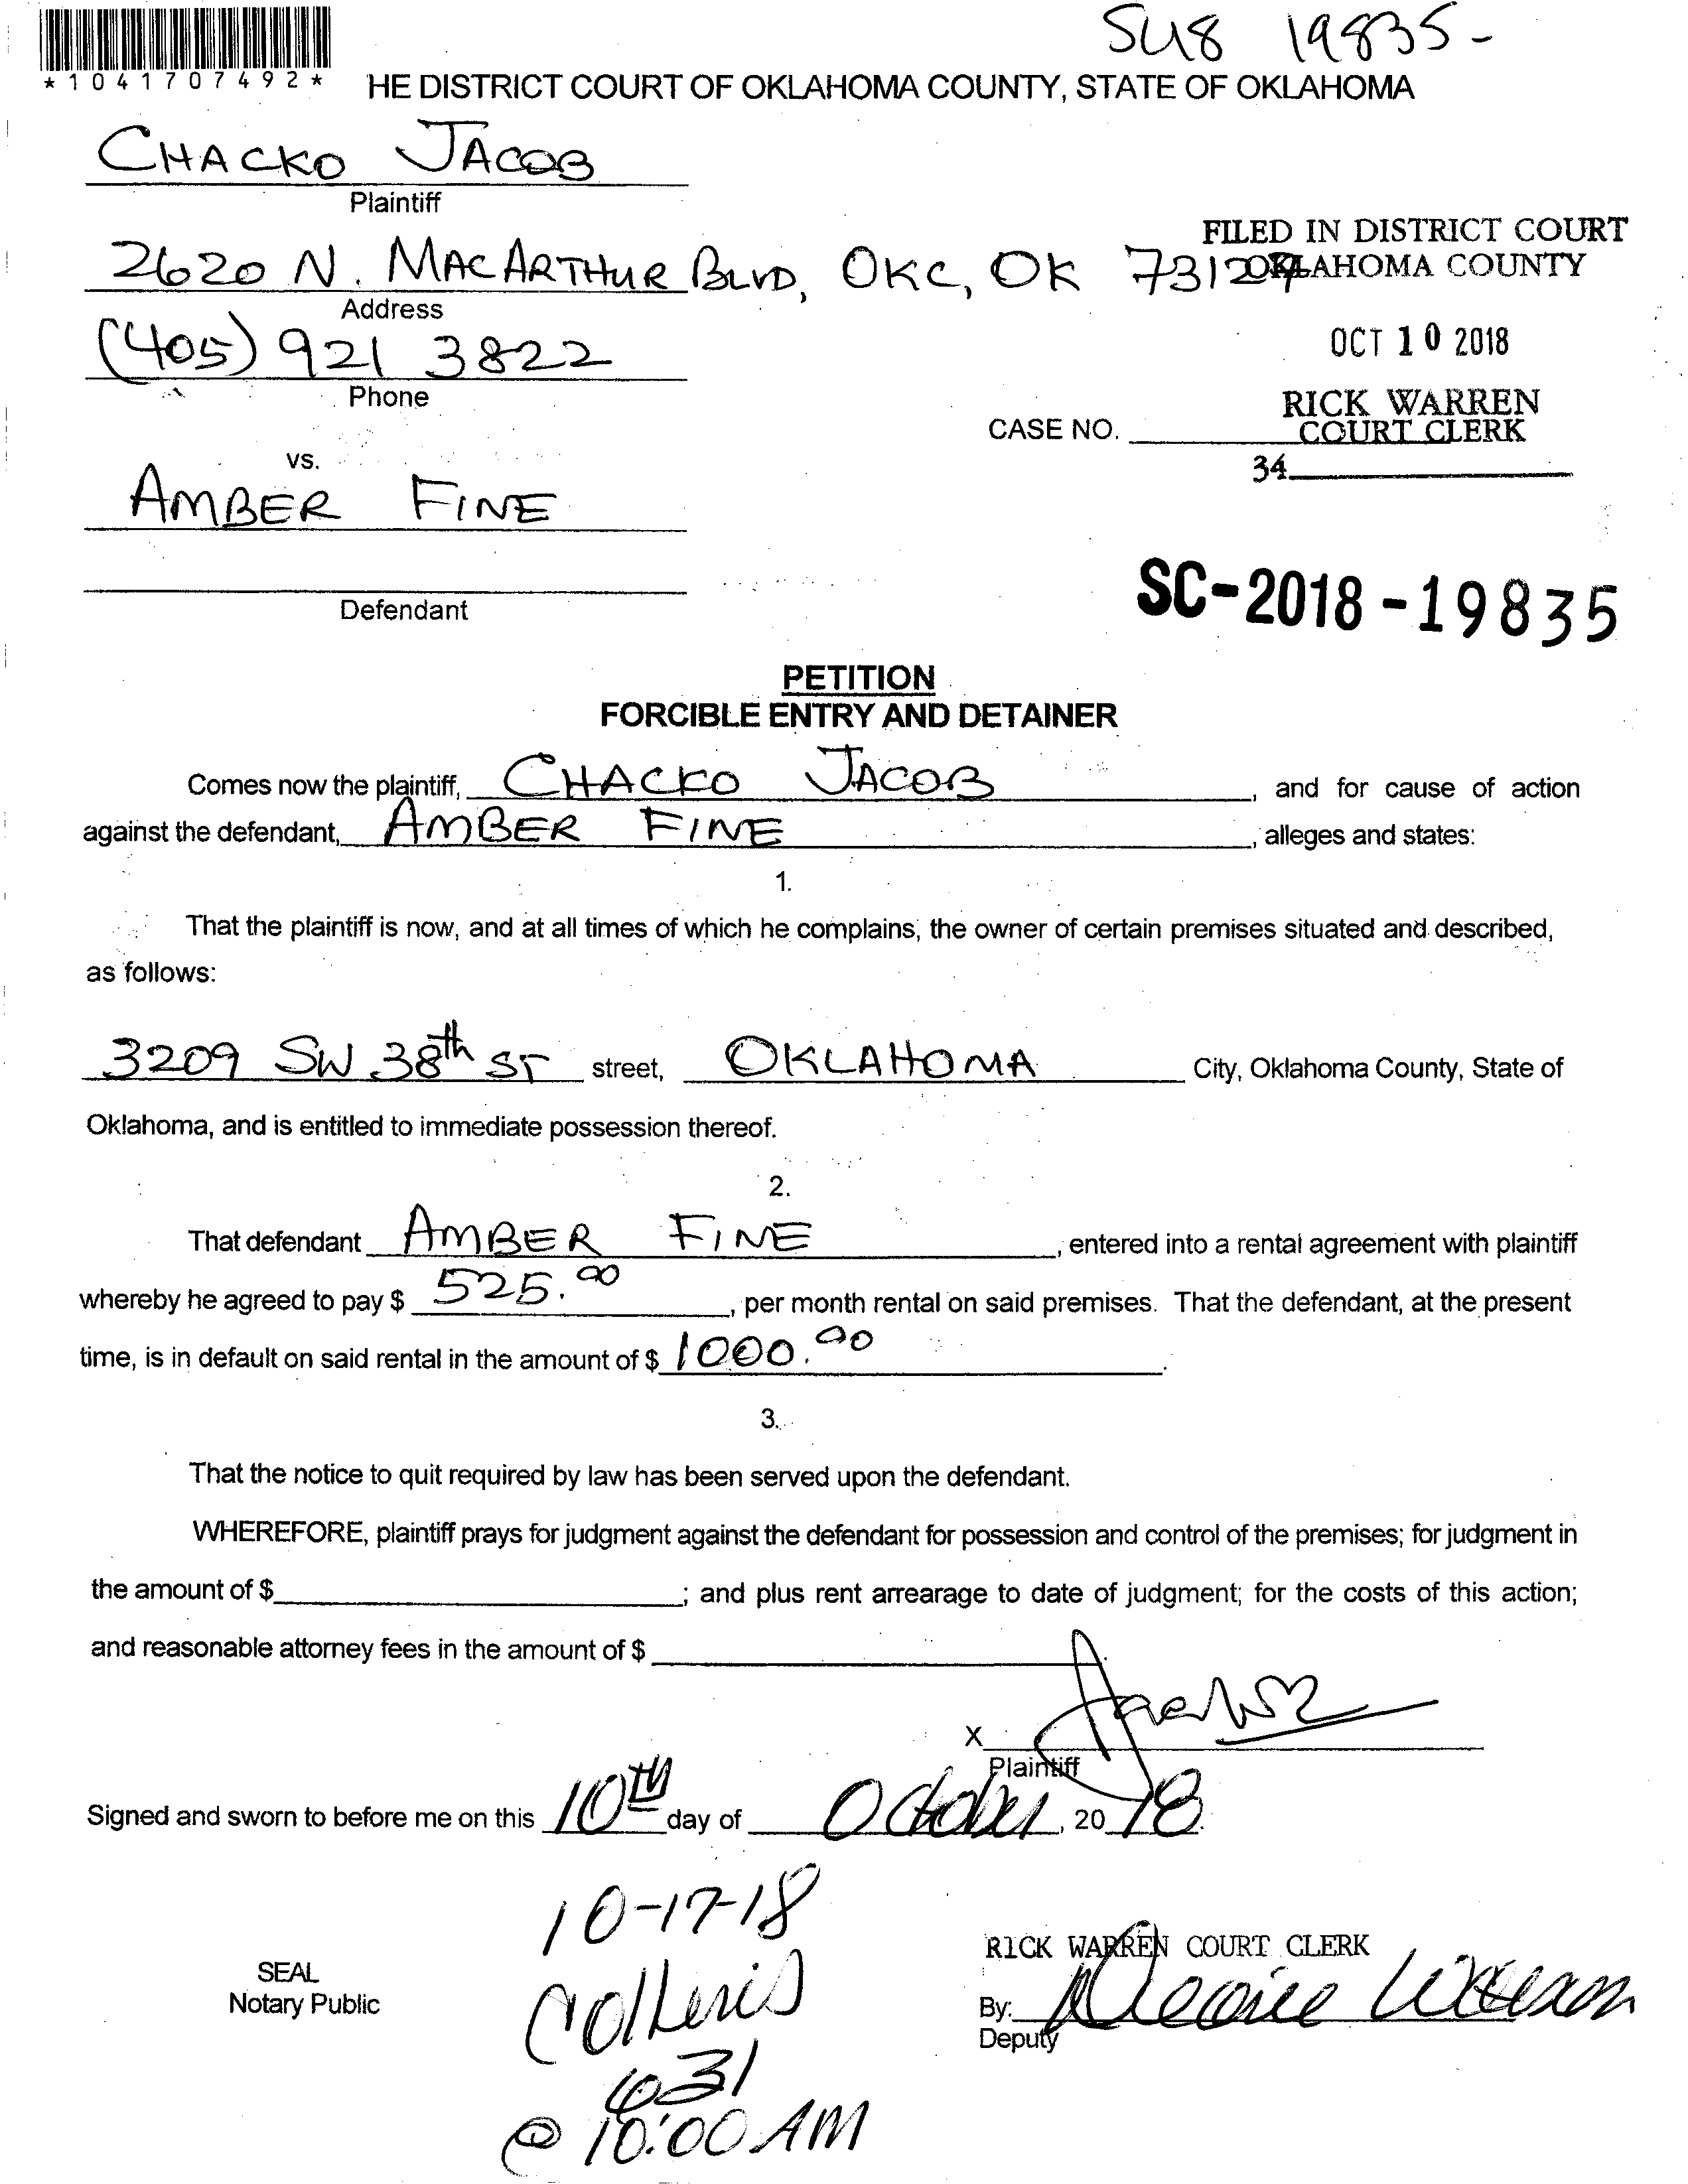 SC18 19835-
*1041707492*
HE DISTRICT COURT OF OKLAHOMA COUNTY, STATE OF OKLAHOMA
CHACKO JACOB
Plaintiff
FILED IN DISTRICT COURT
2620 N. MACARTHUR BLVD, OKC, OK OKLAHOMA COUNTY
Address
(405) 921 3822
OCT 10 2018
Phone
RICK WARREN
CASE NO. COURT CLERK
vs.
34
AMBER FINE
Defendant
SC-2018-19835
PETITION
FORCIBLE ENTRY AND DETAINER
Comes now the plaintiff, CHACKO JACOB, and for cause of action
against the defendant, AMBER FINE, alleges and states:
1.
That the plaintiff is now, and at all times of which he complains, the owner of certain premises situated and described,
as follows:
3209 SW 38th ST street, OKLAHOMA City, Oklahoma County, State of
Oklahoma, and is entitled to immediate possession thereof.
2.
That defendant AMBER FINE, entered into a rental agreement with plaintiff
whereby he agreed to pay $ 525.00, per month rental on said premises. That the defendant, at the present
time, is in default on said rental in the amount of $ 1000.00.
3.
That the notice to quit required by law has been served upon the defendant.
WHEREFORE, plaintiff prays for judgment against the defendant for possession and control of the premises; for judgment in
the amount of $ ; and plus rent arrearage to date of judgment; for the costs of this action;
and reasonable attorney fees in the amount of $
X
Plaintiff
Signed and sworn to before me on this 10TH day of October, 2018.
10-17-18
RICK WARREN COURT CLERK
SEAL
Notary Public
By:
Deputy
631
@ 10:00 AM